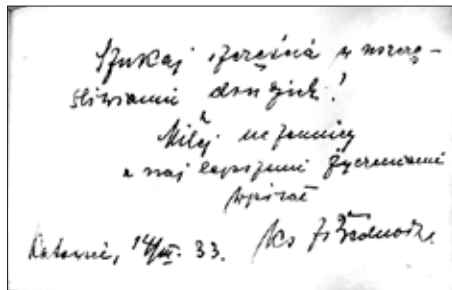 Szukaj szczęścia w uszczę-
śliwianiu drugich!
Miłej uczennicy
z najlepszemi życzeniami
wpisał
Katowice, 14/III. 33. Ks